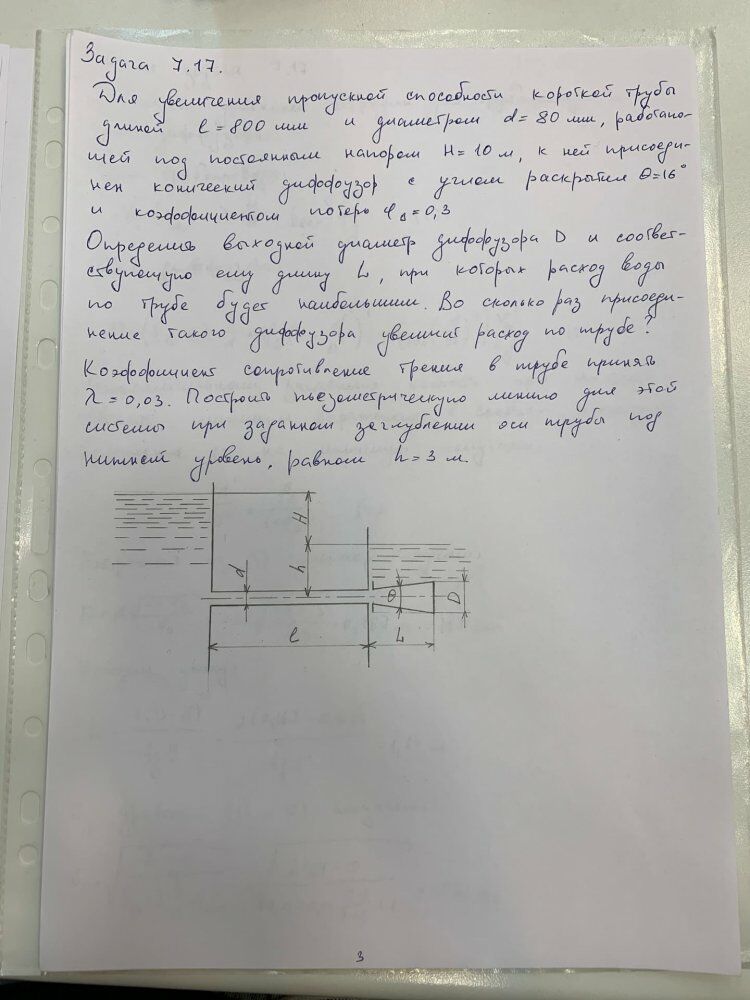 Задача 7.17.
Для увеличения пропускной способности короткой трубы
длиной l = 800 мм и диаметром d = 80 мм, работаю-
щей под постоянным напором H = 10 м, к ней присоеди-
нен конический диффузор с углом раскрытия θ = 16°
и коэффициентом потерь φд = 0,3
Определить выходной диаметр диффузора D и соответ-
ствующую ему длину L, при которых расход воды
по трубе будет наибольшим. Во сколько раз присоеди-
нение такого диффузора увеличит расход по трубе?
Коэффициент сопротивление трения в трубе принять
λ = 0,03. Построить пьезометрическую линию для этой
системы при заданном заглублении оси трубы под
нижний уровень, равном h = 3 м.
H
d
h
θ
D
l
L
3